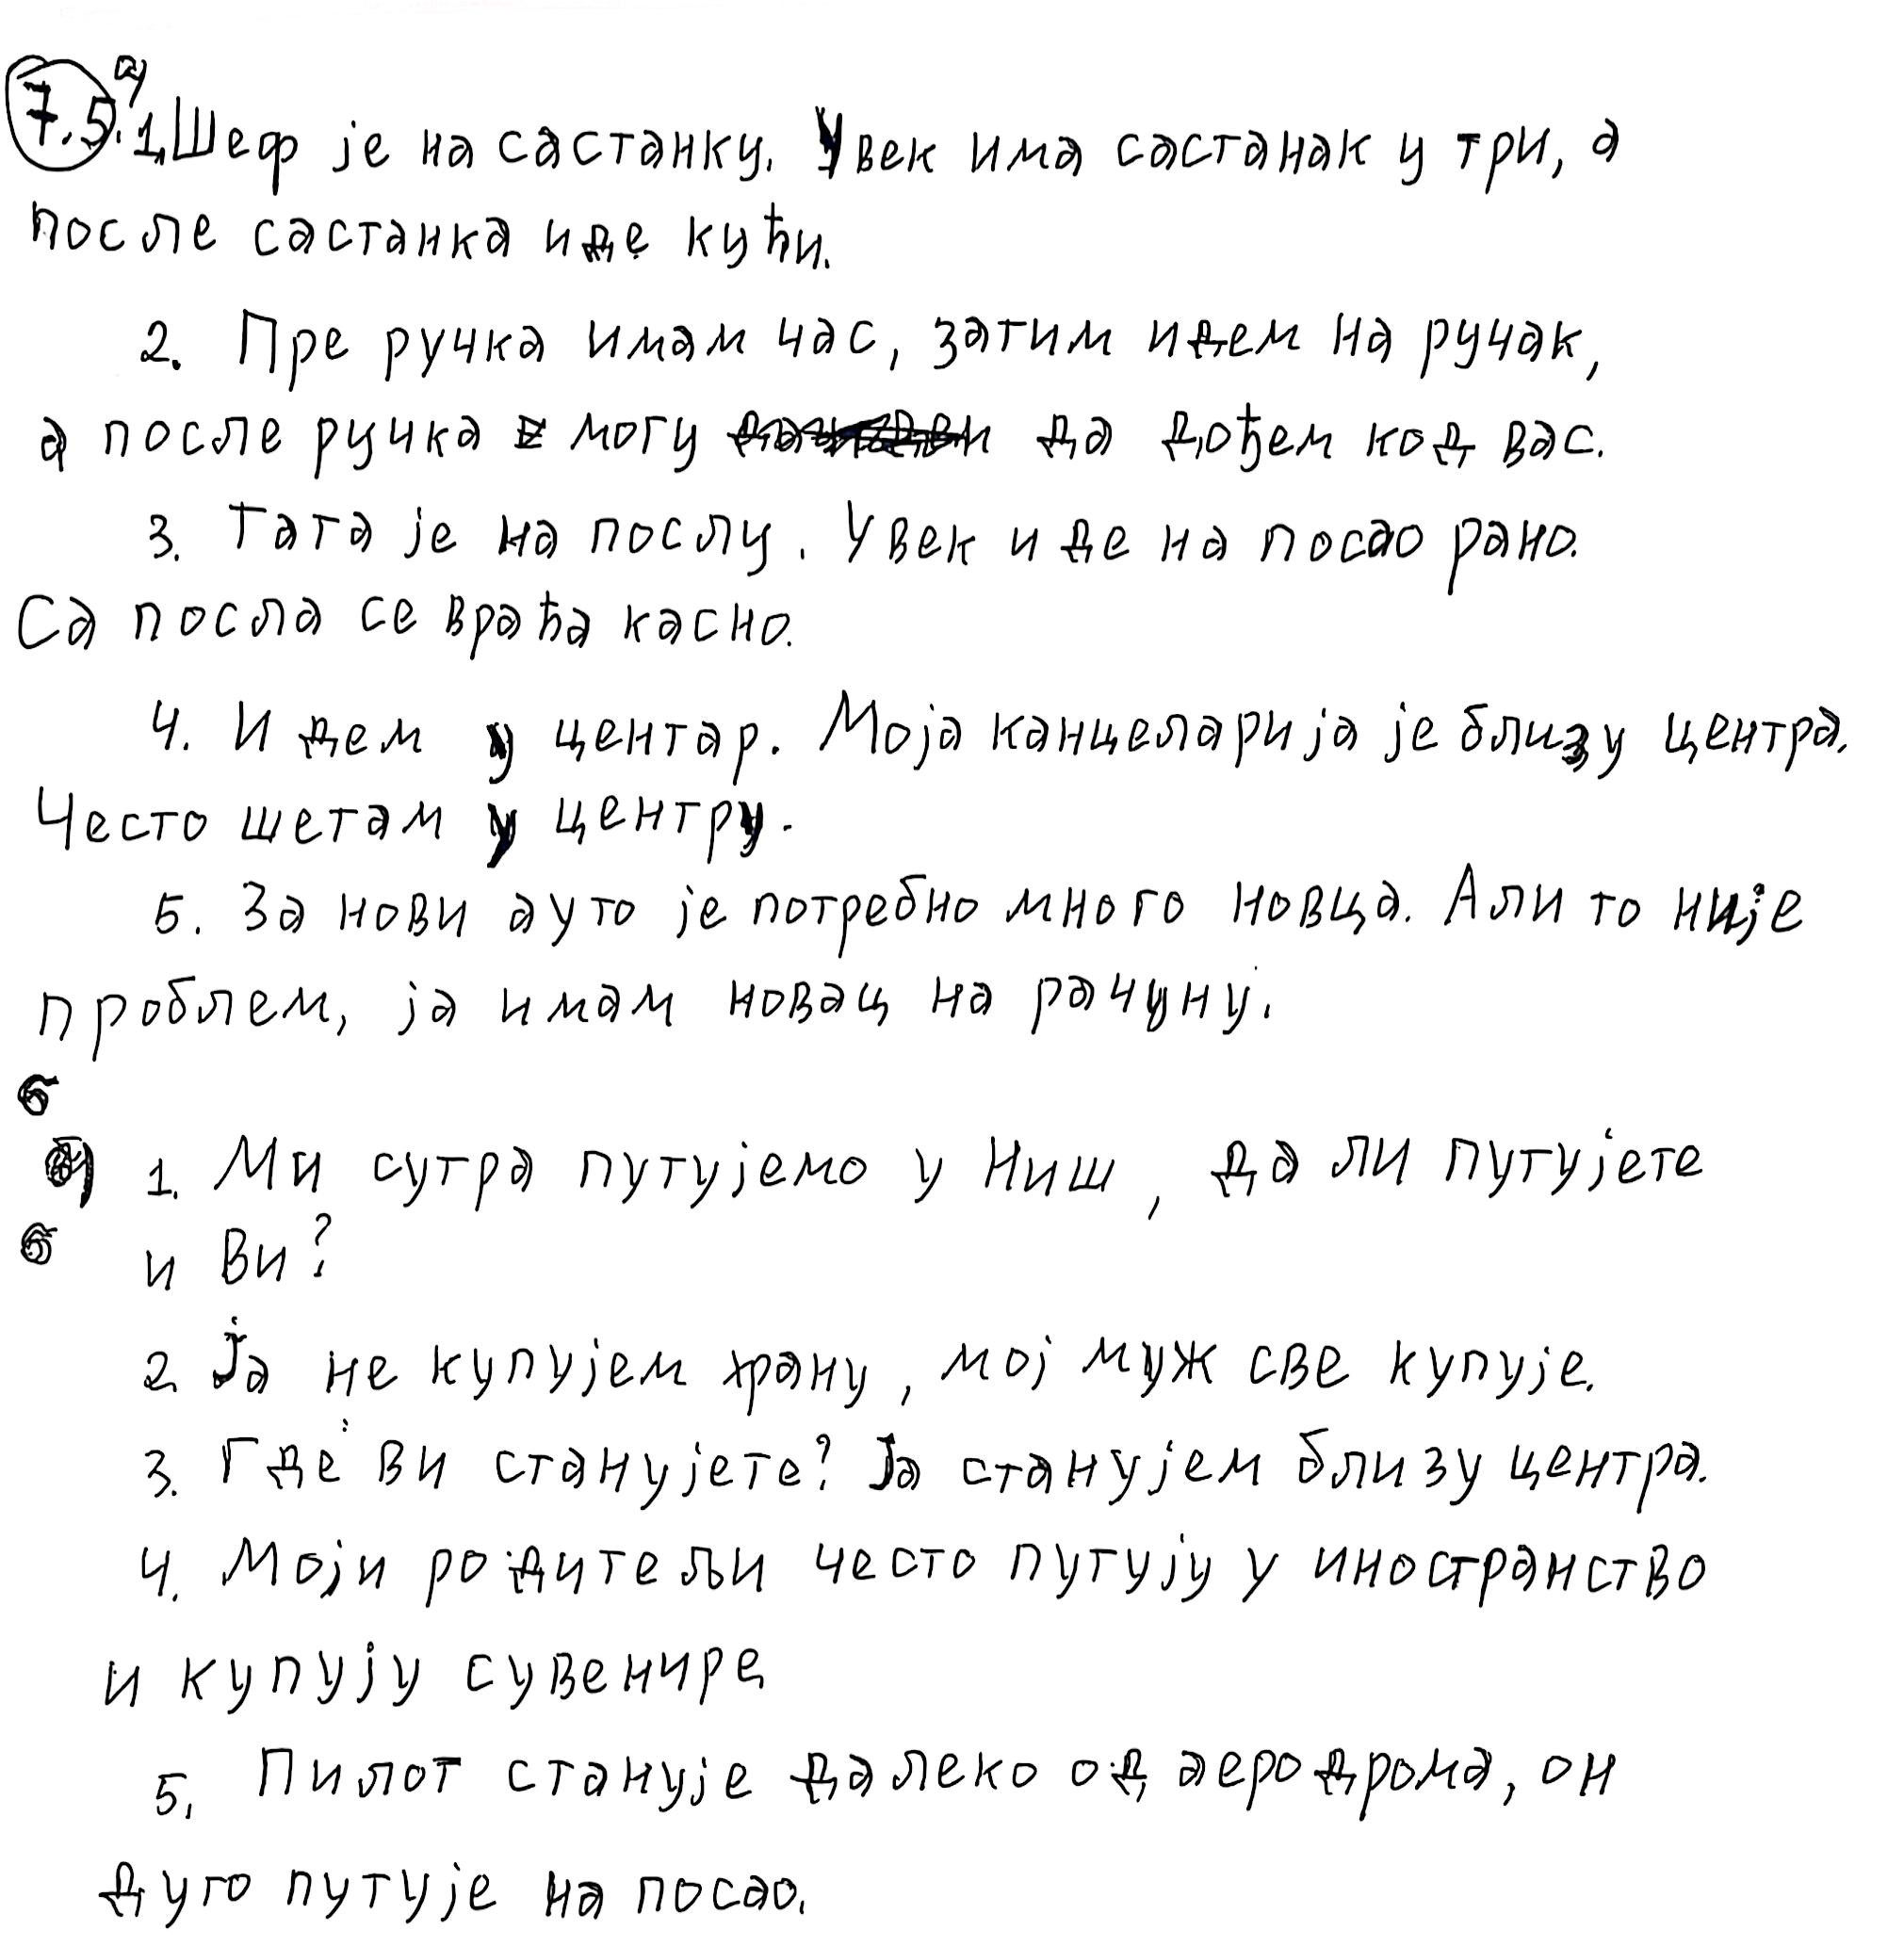 7.5. а) 1. Шеф је на састанку. Увек има састанак у три, а
после састанка иде кући.
2. Пре ручка имам час, затим идем на ручак,
а после ручка могу да дођем код вас.
3. Тата је на послу. Увек иде на посао рано.
Са посла се враћа касно.
4. Идем у центар. Моја канцеларија је близу центра.
Често шетам у центру.
5. За нови ауто је потребно много новца. Али то није
проблем, ја имам новац на рачуну.
б
б) 1. Ми сутра путујемо у Ниш, да ли путујете
б и Ви?
2. Ја не купујем храну, мој муж све купује.
3. Где ви станујете? Ја станујем близу центра.
4. Моји родитељи често путују у иностранство
и купују сувенире
5. Пилот станује далеко од аеродрома, он
дуго путује на посао.